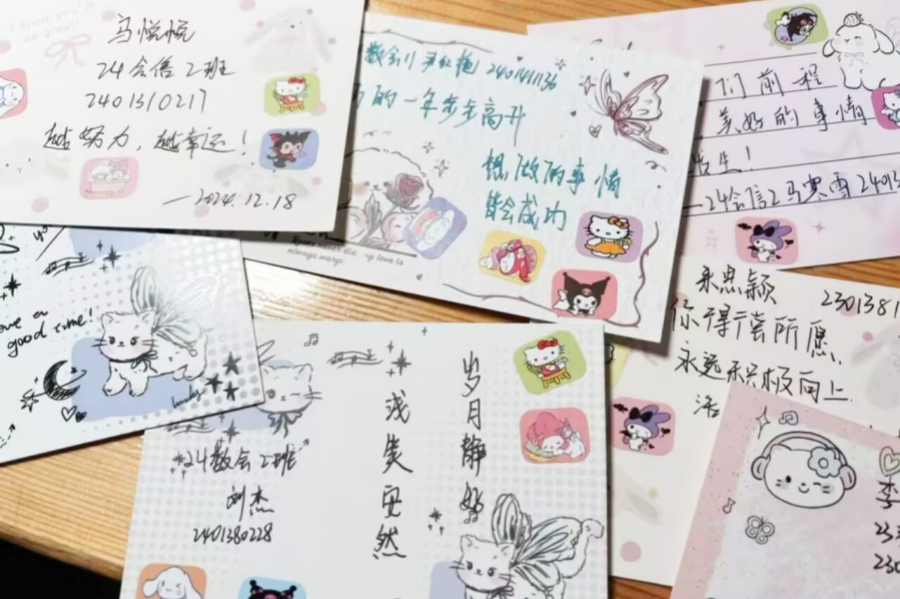 马悦悦
24会信2班
2401310217
越努力，越幸运！
—2024.12.18
2401411136
的一年步步高升
想做的事情
皆会成功
always
love is
们前程
美好的事情
生！
—24会信2马寒雪 2401
good time!
lucky
岁月静好
浅笑安然
24数会2班
刘杰
2401380228
朱思颖 2301381
你得偿所愿，
永远积极向上
活
李
233
230